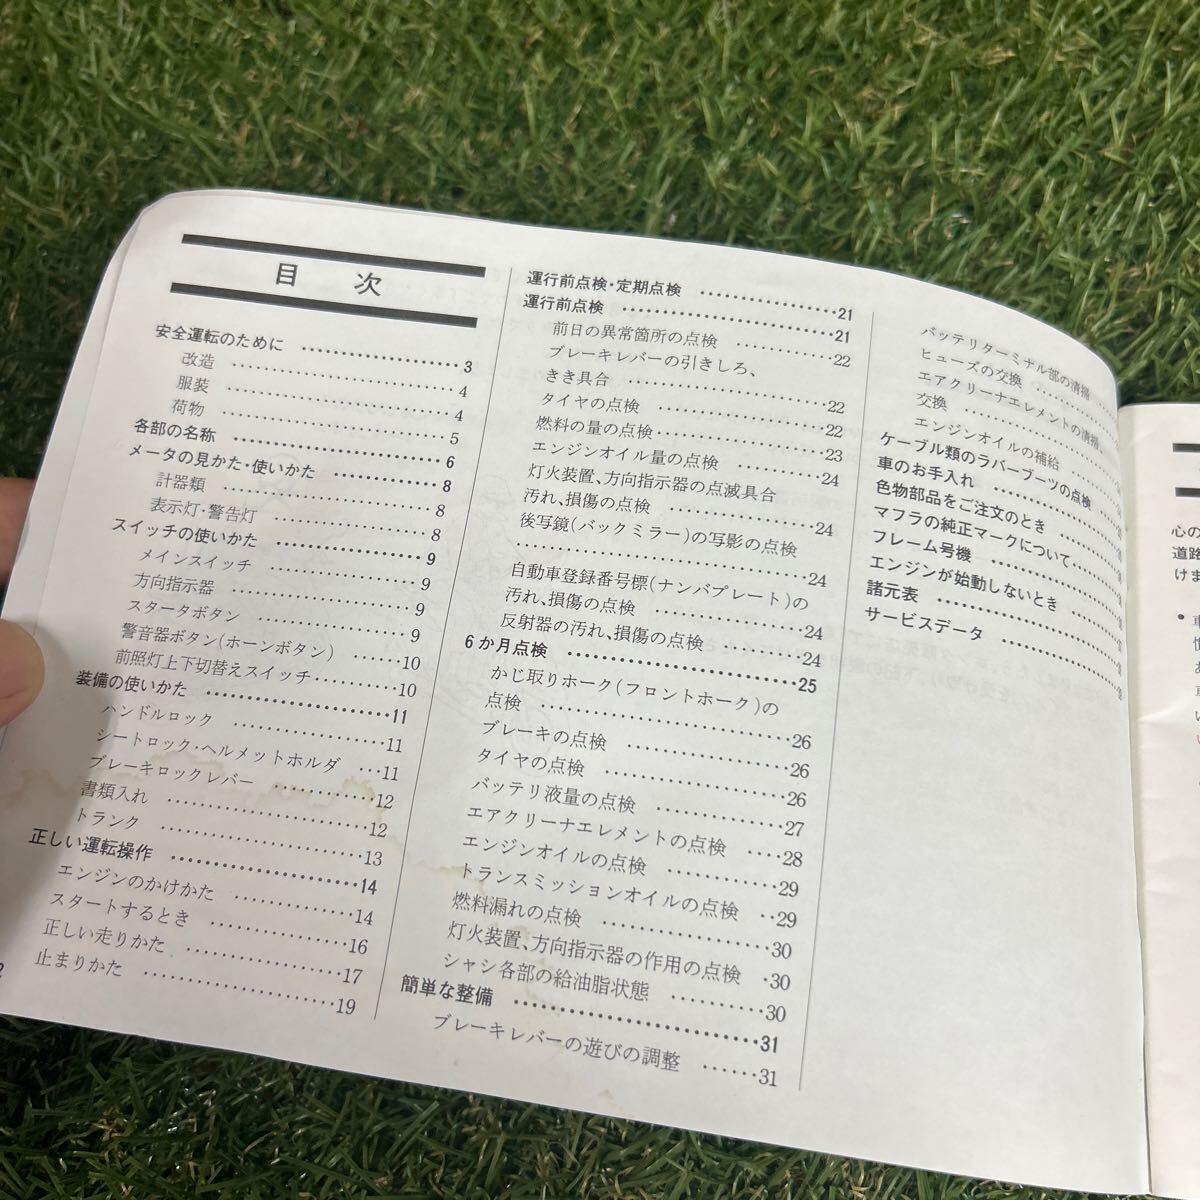 目 次
安全運転のために ……… 3
改造 ……… 4
服装 ……… 4
荷物 ……… 5
各部の名称 ……… 6
メータの見かた・使いかた ……… 8
計器類 ……… 8
表示灯・警告灯 ……… 8
スイッチの使いかた ……… 9
メインスイッチ ……… 9
方向指示器 ……… 9
スタータボタン ……… 9
警音器ボタン(ホーンボタン) ……… 10
前照灯上下切替えスイッチ ……… 10
装備の使いかた ……… 11
ハンドルロック ……… 11
シートロック・ヘルメットホルダ ……… 11
ブレーキロックレバー ……… 12
書類入れ ……… 12
トランク ……… 13
正しい運転操作 ……… 14
エンジンのかけかた ……… 14
スタートするとき ……… 16
正しい走りかた ……… 17
止まりかた ……… 19
2
運行前点検・定期点検 ……… 21
運行前点検 ……… 21
前日の異常箇所の点検 ……… 22
ブレーキレバーの引きしろ、
きき具合 ……… 22
タイヤの点検 ……… 22
燃料の量の点検 ……… 23
エンジンオイル量の点検 ……… 24
灯火装置、方向指示器の点滅具合
汚れ、損傷の点検 ……… 24
後写鏡(バックミラー)の写影の点検
……… 24
自動車登録番号標(ナンバプレート)の
汚れ、損傷の点検 ……… 24
反射器の汚れ、損傷の点検 ……… 24
6か月点検 ……… 25
かじ取りホーク(フロントホーク)の
点検 ……… 26
ブレーキの点検 ……… 26
タイヤの点検 ……… 26
バッテリ液量の点検 ……… 27
エアクリーナエレメントの点検 ……… 28
エンジンオイルの点検 ……… 29
トランスミッションオイルの点検 ‥29
燃料漏れの点検 ……… 30
灯火装置、方向指示器の作用の点検 ・30
シャシ各部の給油脂状態 ……… 30
簡単な整備 ……… 31
ブレーキレバーの遊びの調整 ……31
バッテリターミナル部の清掃
ヒューズの交換 ………
エアクリーナエレメントの清掃
交換 ………
エンジンオイルの補給 ………
ケーブル類のラバーブーツの点検
車のお手入れ ………
色物部品をご注文のとき ………
マフラの純正マークについて ………
フレーム号機 ………
エンジンが始動しないとき ………
諸元表 ………
サービスデータ ………
心の
道路
けま
● 車